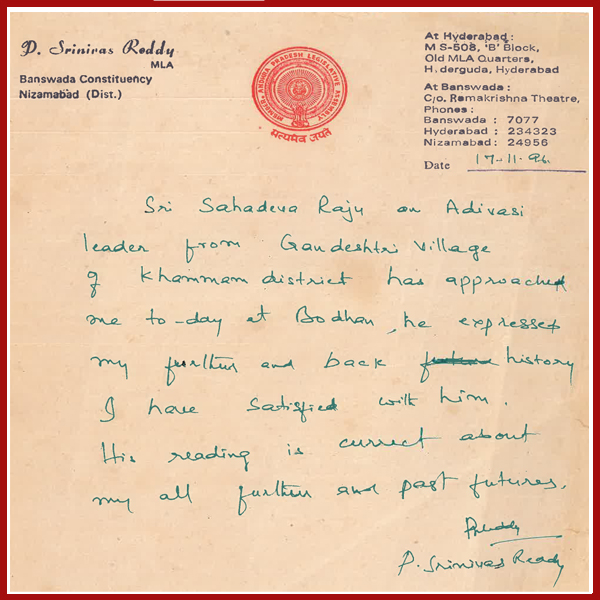 P. Srinivas Reddy
MLA
Banswada Constituency
Nizamabad (Dist.)
MEMBER, ANDHRA PRADESH LEGISLATIVE ASSEMBLY
सत्यमेव जयते
At Hyderabad :
M S-508, 'B' Block,
Old MLA Quarters,
H.derguda, Hyderabad
At Banswada :
C/o. Ramakrishna Theatre,
Phones :
Banswada : 7077
Hyderabad : 234323
Nizamabad : 24956
Date 17-11-96.
Sri Sahadeva Raju an Adivasi
leader from Gandeshtri village
of Khammam district has approached
me to-day at Bodhan, he expresses
my further and back history
I have satisfied with him.
His reading is currect about
my all further and past futures.
PReddy
P. Srinivas Reddy